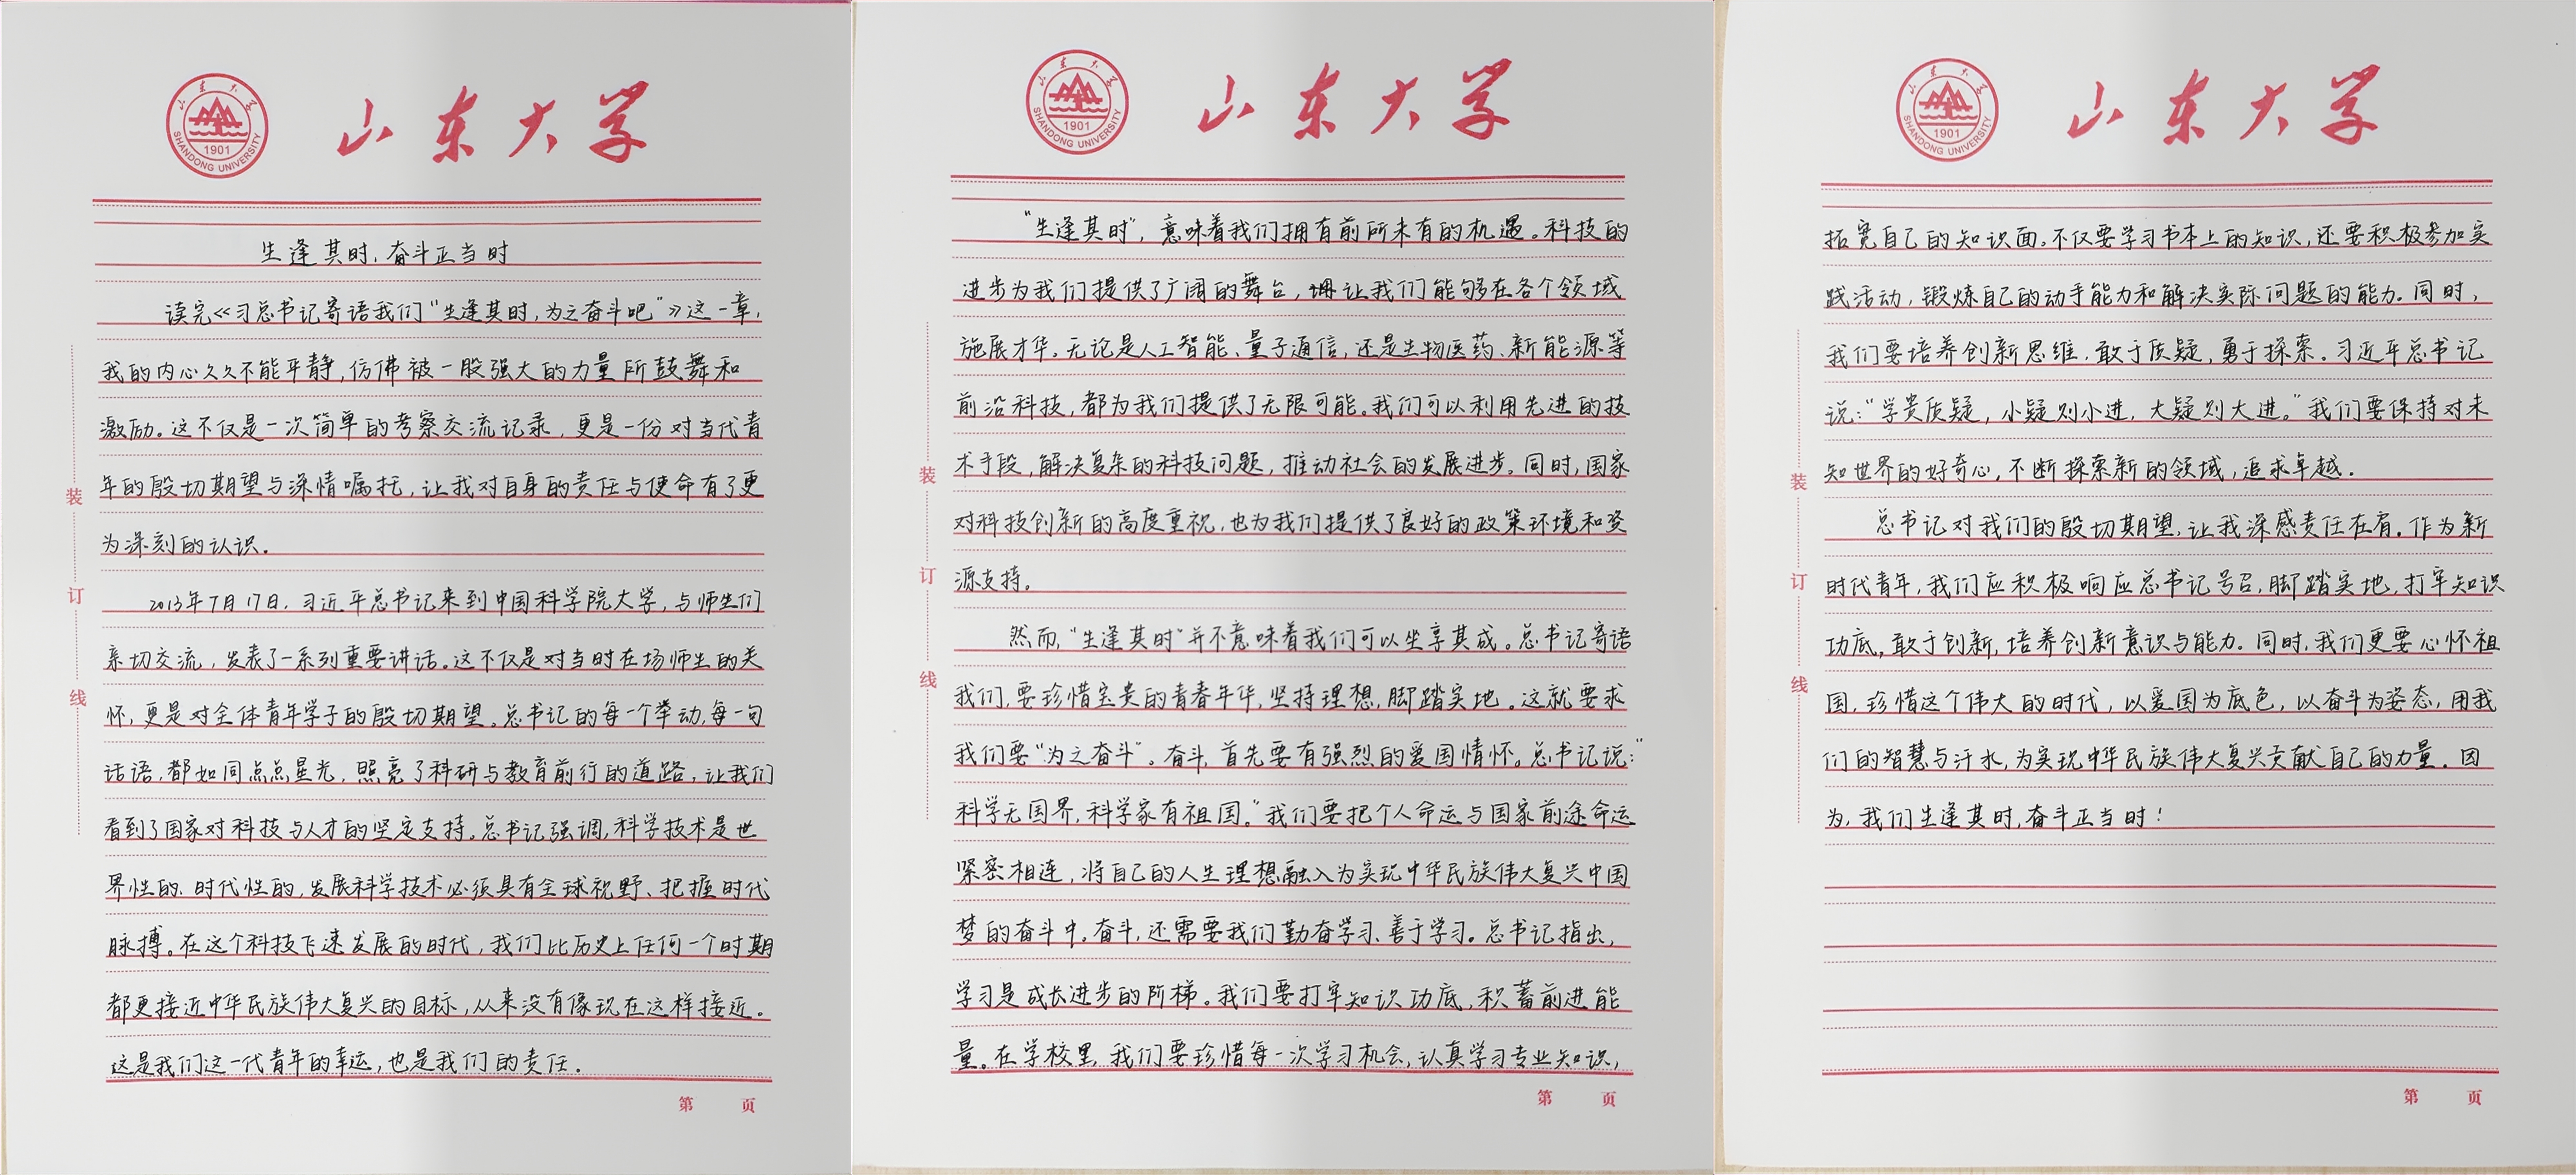 山东大学
山东大学
SHANDONG UNIVERSITY
1901
生逢其时,奋斗正当时
读完《习总书记寄语我们“生逢其时,为之奋斗吧”》这一章,
我的内心久久不能平静,仿佛被一股强大的力量所鼓舞和
激励。这不仅是一次简单的考察交流记录,更是一份对当代青
年的殷切期望与深情嘱托,让我对自身的责任与使命有了更
为深刻的认识。
2013年7月17日,习近平总书记来到中国科学院大学,与师生们
亲切交流,发表了一系列重要讲话。这不仅是对当时在场师生的关
怀,更是对全体青年学子的殷切期望。总书记的每一个举动,每一句
话语,都如同点点星光,照亮了科研与教育前行的道路,让我们
看到了国家对科技与人才的坚定支持。总书记强调,科学技术是世
界性的、时代性的,发展科学技术必须具有全球视野、把握时代
脉搏。在这个科技飞速发展的时代,我们比历史上任何一个时期
都更接近中华民族伟大复兴的目标,从来没有像现在这样接近。
这是我们这一代青年的幸运,也是我们的责任。
装
订
线
第 页
山东大学
山东大学
SHANDONG UNIVERSITY
1901
“生逢其时”,意味着我们拥有前所未有的机遇。科技的
进步为我们提供了广阔的舞台,让我们能够在各个领域
施展才华。无论是人工智能、量子通信,还是生物医药、新能源等
前沿科技,都为我们提供了无限可能。我们可以利用先进的技
术手段,解决复杂的科技问题,推动社会的发展进步。同时,国家
对科技创新的高度重视,也为我们提供了良好的政策环境和资
源支持。
然而,“生逢其时”并不意味着我们可以坐享其成。总书记寄语
我们,要珍惜宝贵的青春年华,坚持理想,脚踏实地。这就要求
我们要“为之奋斗”。奋斗,首先要有强烈的爱国情怀。总书记说:“
科学无国界,科学家有祖国。”我们要把个人命运与国家前途命运
紧密相连,将自己的人生理想融入为实现中华民族伟大复兴中国
梦的奋斗中。奋斗,还需要我们勤奋学习、善于学习。总书记指出,
学习是成长进步的阶梯。我们要打牢知识功底,积蓄前进能
量。在学校里,我们要珍惜每一次学习机会,认真学习专业知识,
装
订
线
第 页
山东大学
山东大学
SHANDONG UNIVERSITY
1901
拓宽自己的知识面。不仅要学习书本上的知识,还要积极参加实
践活动,锻炼自己的动手能力和解决实际问题的能力。同时,
我们要培养创新思维,敢于质疑,勇于探索。习近平总书记
说:“学贵质疑,小疑则小进,大疑则大进。”我们要保持对未
知世界的好奇心,不断探索新的领域,追求卓越。
总书记对我们的殷切期望,让我深感责任在肩。作为新
时代青年,我们应积极响应总书记号召,脚踏实地,打牢知识
功底,敢于创新,培养创新意识与能力。同时,我们更要心怀祖
国,珍惜这个伟大的时代,以爱国为底色,以奋斗为姿态,用我
们的智慧与汗水,为实现中华民族伟大复兴贡献自己的力量。因
为,我们生逢其时,奋斗正当时!
装
订
线
第 页